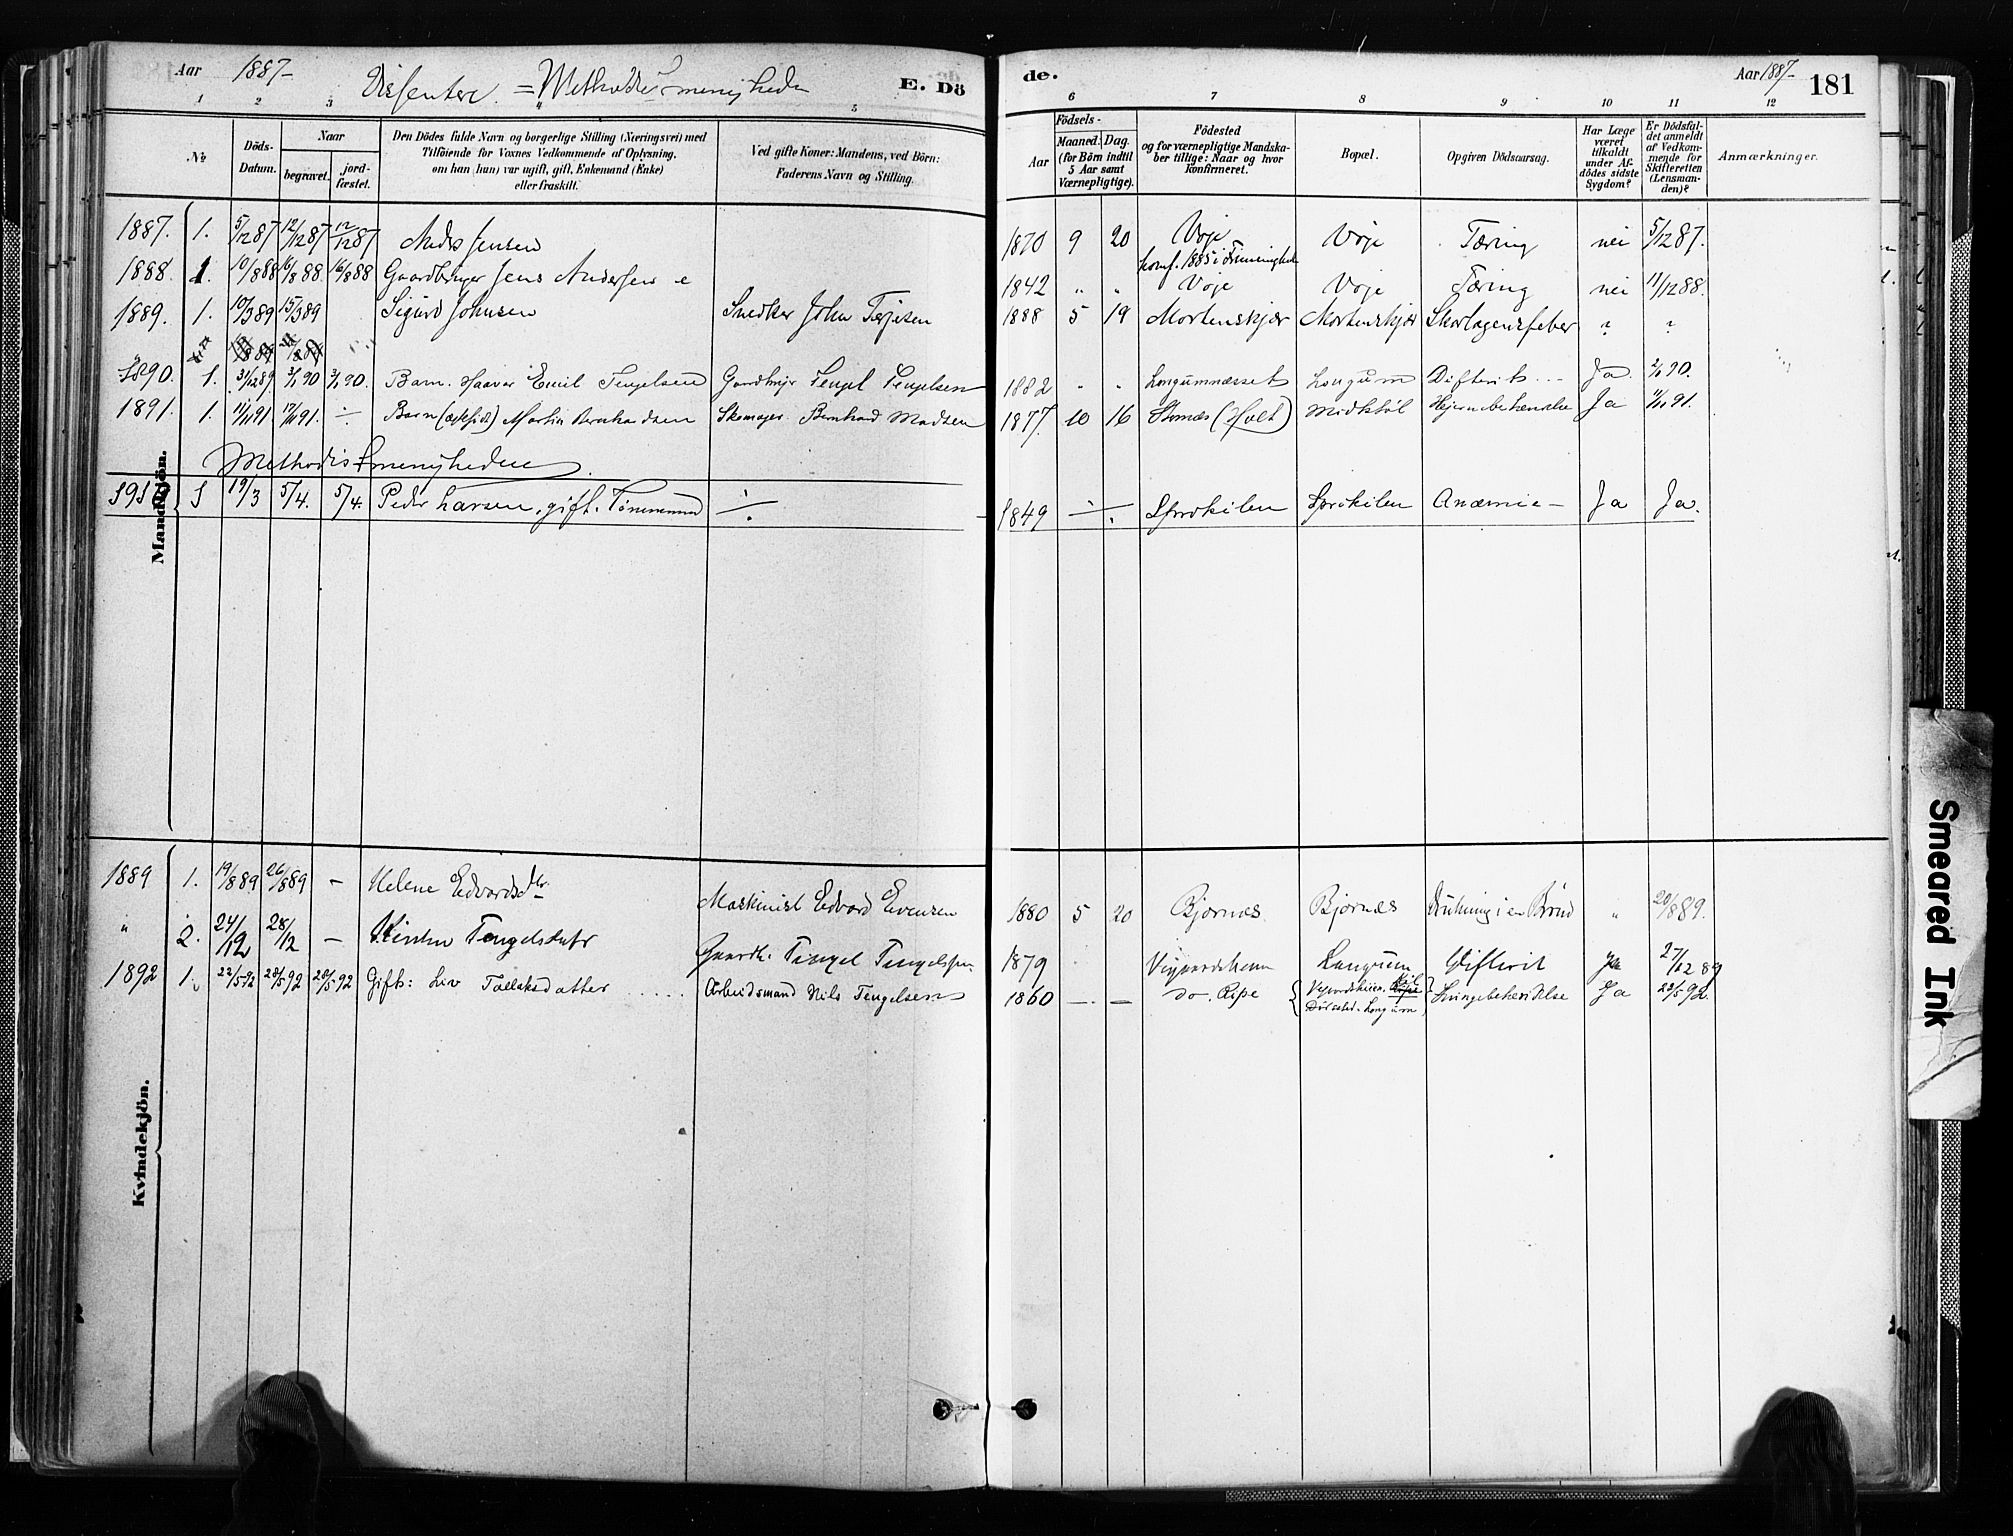 Aar 1887-
Dissentere. = Methodistmenigheden
E. Dö
1 2 3 5
№
Döds-
Datum.
Naar
begravet.
jord-
fæstet.
Den Dödes fulde Navn og borgerlige Stilling (Næringsvei) med
Tilföiende for Voxnes Vedkommende af Oplysning,
om han (hun) var ugift, gift, Enkemand (Enke)
eller fraskilt.
Ved gifte Koner: Mandens, ved Börn:
Faderens Navn og Stilling.
1887. 1. 5/12 87 12/12 87 12/12 87 Anders Jensen
1888. 1. 10/8 88 16/8 88 16/8 88 Gaardbruger Jens Andersen e
1889. 1. 10/3 89 15/3 89 Sigurd Johnsen Snedker John Terjesen
1890. 1. 31/12 89 3/1 90 3/1 90. Barn. Haavar Emil Tengelsen Gaardbrger Tengel Tengelsen
1891. 1. 11/11 91. 17/11 91. ÷ Barn Martin Bernhardsen Skomager Bernhard Madsen
Methodistmenigheden
1 19/3 5/4. 5/4. Peder Larsen, gift. Tömmermand ÷
Mandkjön.
1889 1. 19/8 89 26/8 89 – Helene Edvardsdtr. Maskinist Edvard Evensen
" 2. 24/12 28/12 – Kirsten Tengelsdatr Gaardb. Tengel Tengelsen
1892 1. 22/5 92 28/5 92 28/5 92 Gift: Liv Tallaksdatter Arbeidsmand Nils Tengelsens
Kvindekjön.
de.
Aar 1887-
181
6 7 8 9 10 11 12
Födsels-
Aar
Maaned. Dag.
(for Börn indtil
5 Aar samt
Værnepligtige).
Födested
og for værnepligtige Mandska-
ber tillige: Naar og hvor
konfirmeret.
Bopæl.
Opgiven Dödsaarsag.
Har Læge
været
tilkaldt
under Af-
dödes sidste
Sygdom?
Er Dödsfal-
det anmeldt
af Vedkom-
mende for
Skifteretten
(Lensman-
den)?
Anmærkninger.
1870 9 20 Voje Voje Tæring nei 5/12 87.
konf. 1885 i
1842 " " Voje Voje Tæring nei 11/12 88.
1888 5 19 Mortenskjær Mortenskjær Skarlagensfeber ? ?
1882 " " Longumnæsset Longum Difterit Ja 2/1 90.
1877. 10 16 (Holt) Hjernebetændelse Ja 11/11 91.
1849 ÷ Sprokilen Sprokilen Anæmie – Ja Ja.
1880 5 20 Bjornæs Bjornæs Drukning i en Brönd " 20/8 89.
1879 Langum Difterit Ja 27/12 89
1860 – – do. Ripe Ja 23/5 92.
Dödssted. Longum
Smeared Ink